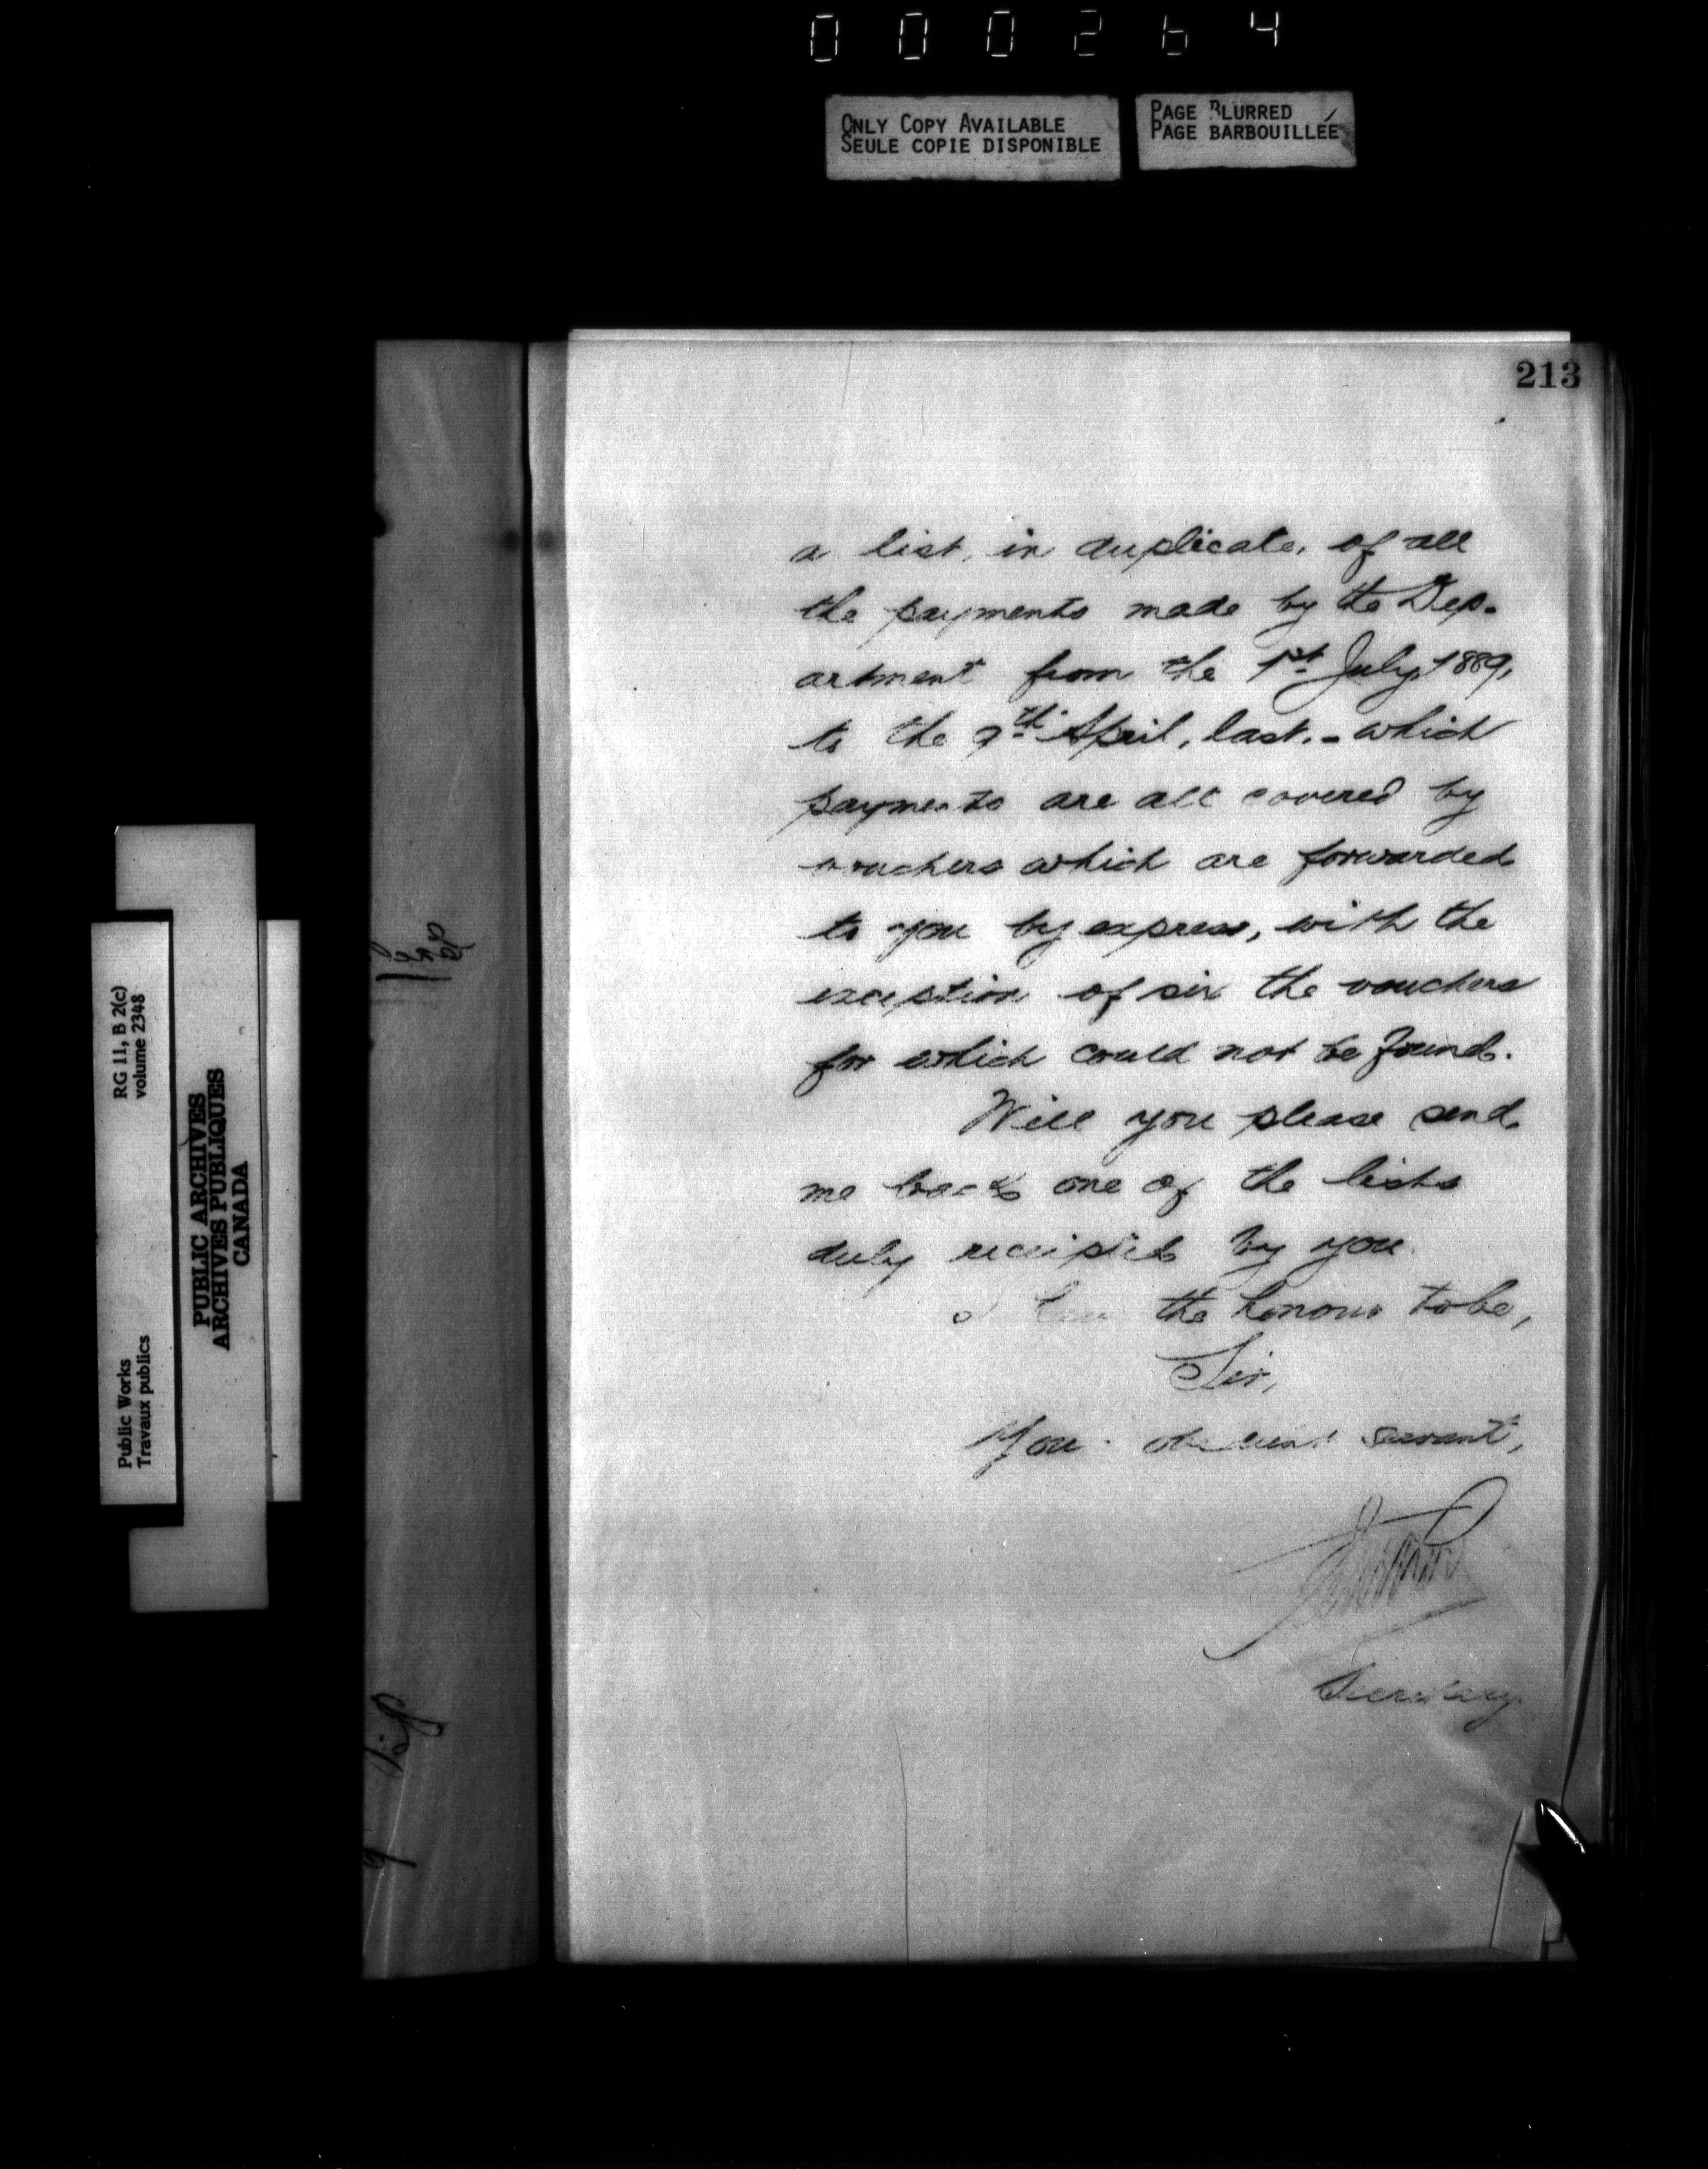 000264
ONLY COPY AVAILABLE
SEULE COPIE DISPONIBLE
PAGE BLURRED
PAGE BARBOUILLÉE
213
a list, in duplicate, of all
the payments made by the Dep-
artment from the 1st July, 1889,
to the 9th April, last. - which
payments are all covered by
vouchers which are forwarded
to you by express, with the
exception of six the vouchers
for which could not be found.
Will you please send
me back one of the lists
duly receipted by you
I have the honour to be,
Sir,
Your obedient servant,
Secretary
RG 11, B 2(c)
volume 2348
Public Works
Travaux publics
PUBLIC ARCHIVES
ARCHIVES PUBLIQUES
CANADA